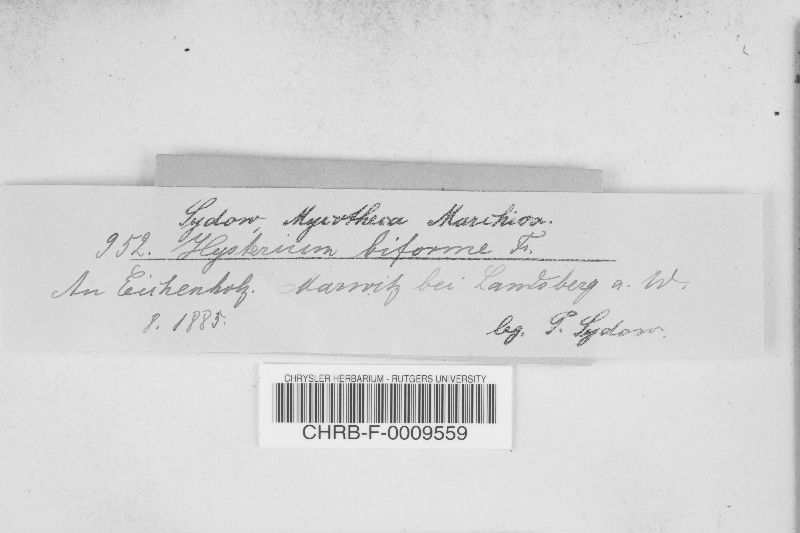 Sydow, Mycotheca Marchica.
952. Hysterium biforme Fr.
An Eichenholz. Marwitz bei Landsberg a. W.
8. 1885.
leg. P. Sydow.
CHRYSLER HERBARIUM - RUTGERS UNIVERSITY
CHRB-F-0009559